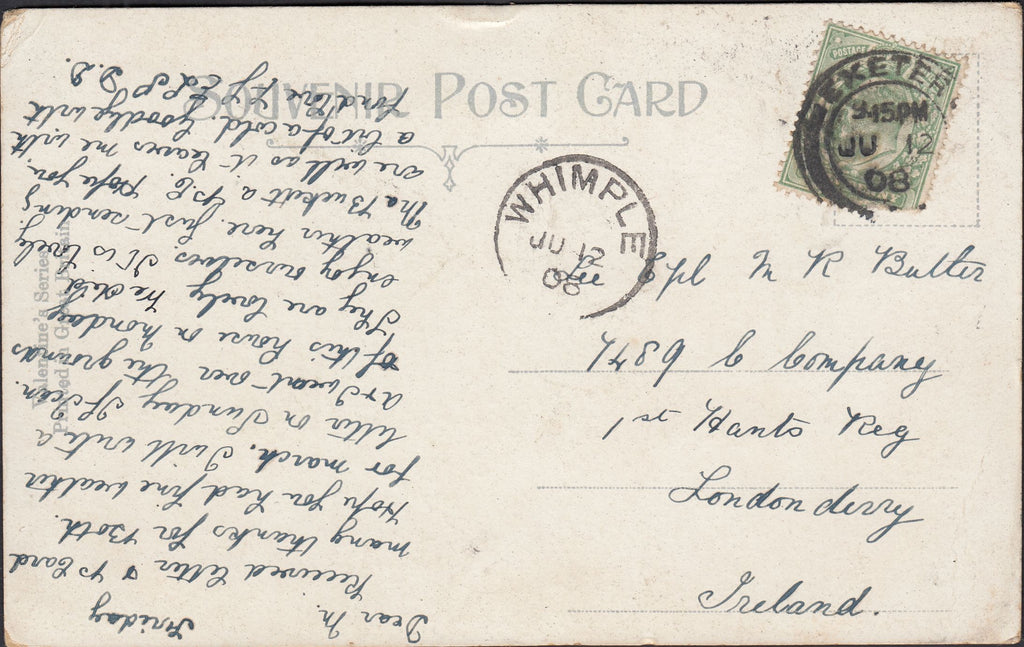 SOUVENIR POST CARD
EXETER
9.15PM
JU 12
08
WHIMPLE
JU 12
08
Cpl M R Butter
7489 C Company
1st Hants Reg
Londonderry
Ireland.
Valentine's Series
Printed in Great Britain
Friday
Dear M.
Received letter & P Card
many thanks for Both.
Hope you had fine weather
for march. I will write a
letter on Sunday If I can.
A & I went over the grounds
of this house on Monday
They are lovely We did
enjoy ourselves It is lovely
weather here. Just sending
Ma Buckett a P.C. Hope you
are well as it leaves me with
a bit of a cold. Goodbye with
Fond Love
POSTAGE